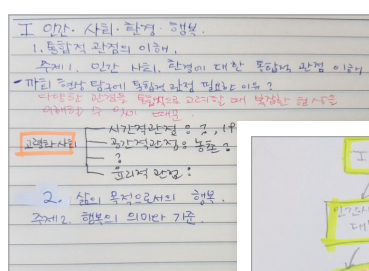 I 인간·사회·환경·행복.
1. 통합적 관점의 이해.
주제1. 인간 사회, 환경에 대한 통합적 관점 이해
사회 현상 탐구에 통합적 관점 필요한 이유?
다양한 관점을 통합적으로 고려할 때 복잡한 현상을
이해할 수 있기 때문.
고령화사회
시간적관점 :
공간적관점 : 농촌
?
윤리적 관점 :
2. 삶의 목적으로서의 행복.
주제2. 행복의 의미와 기준.
I